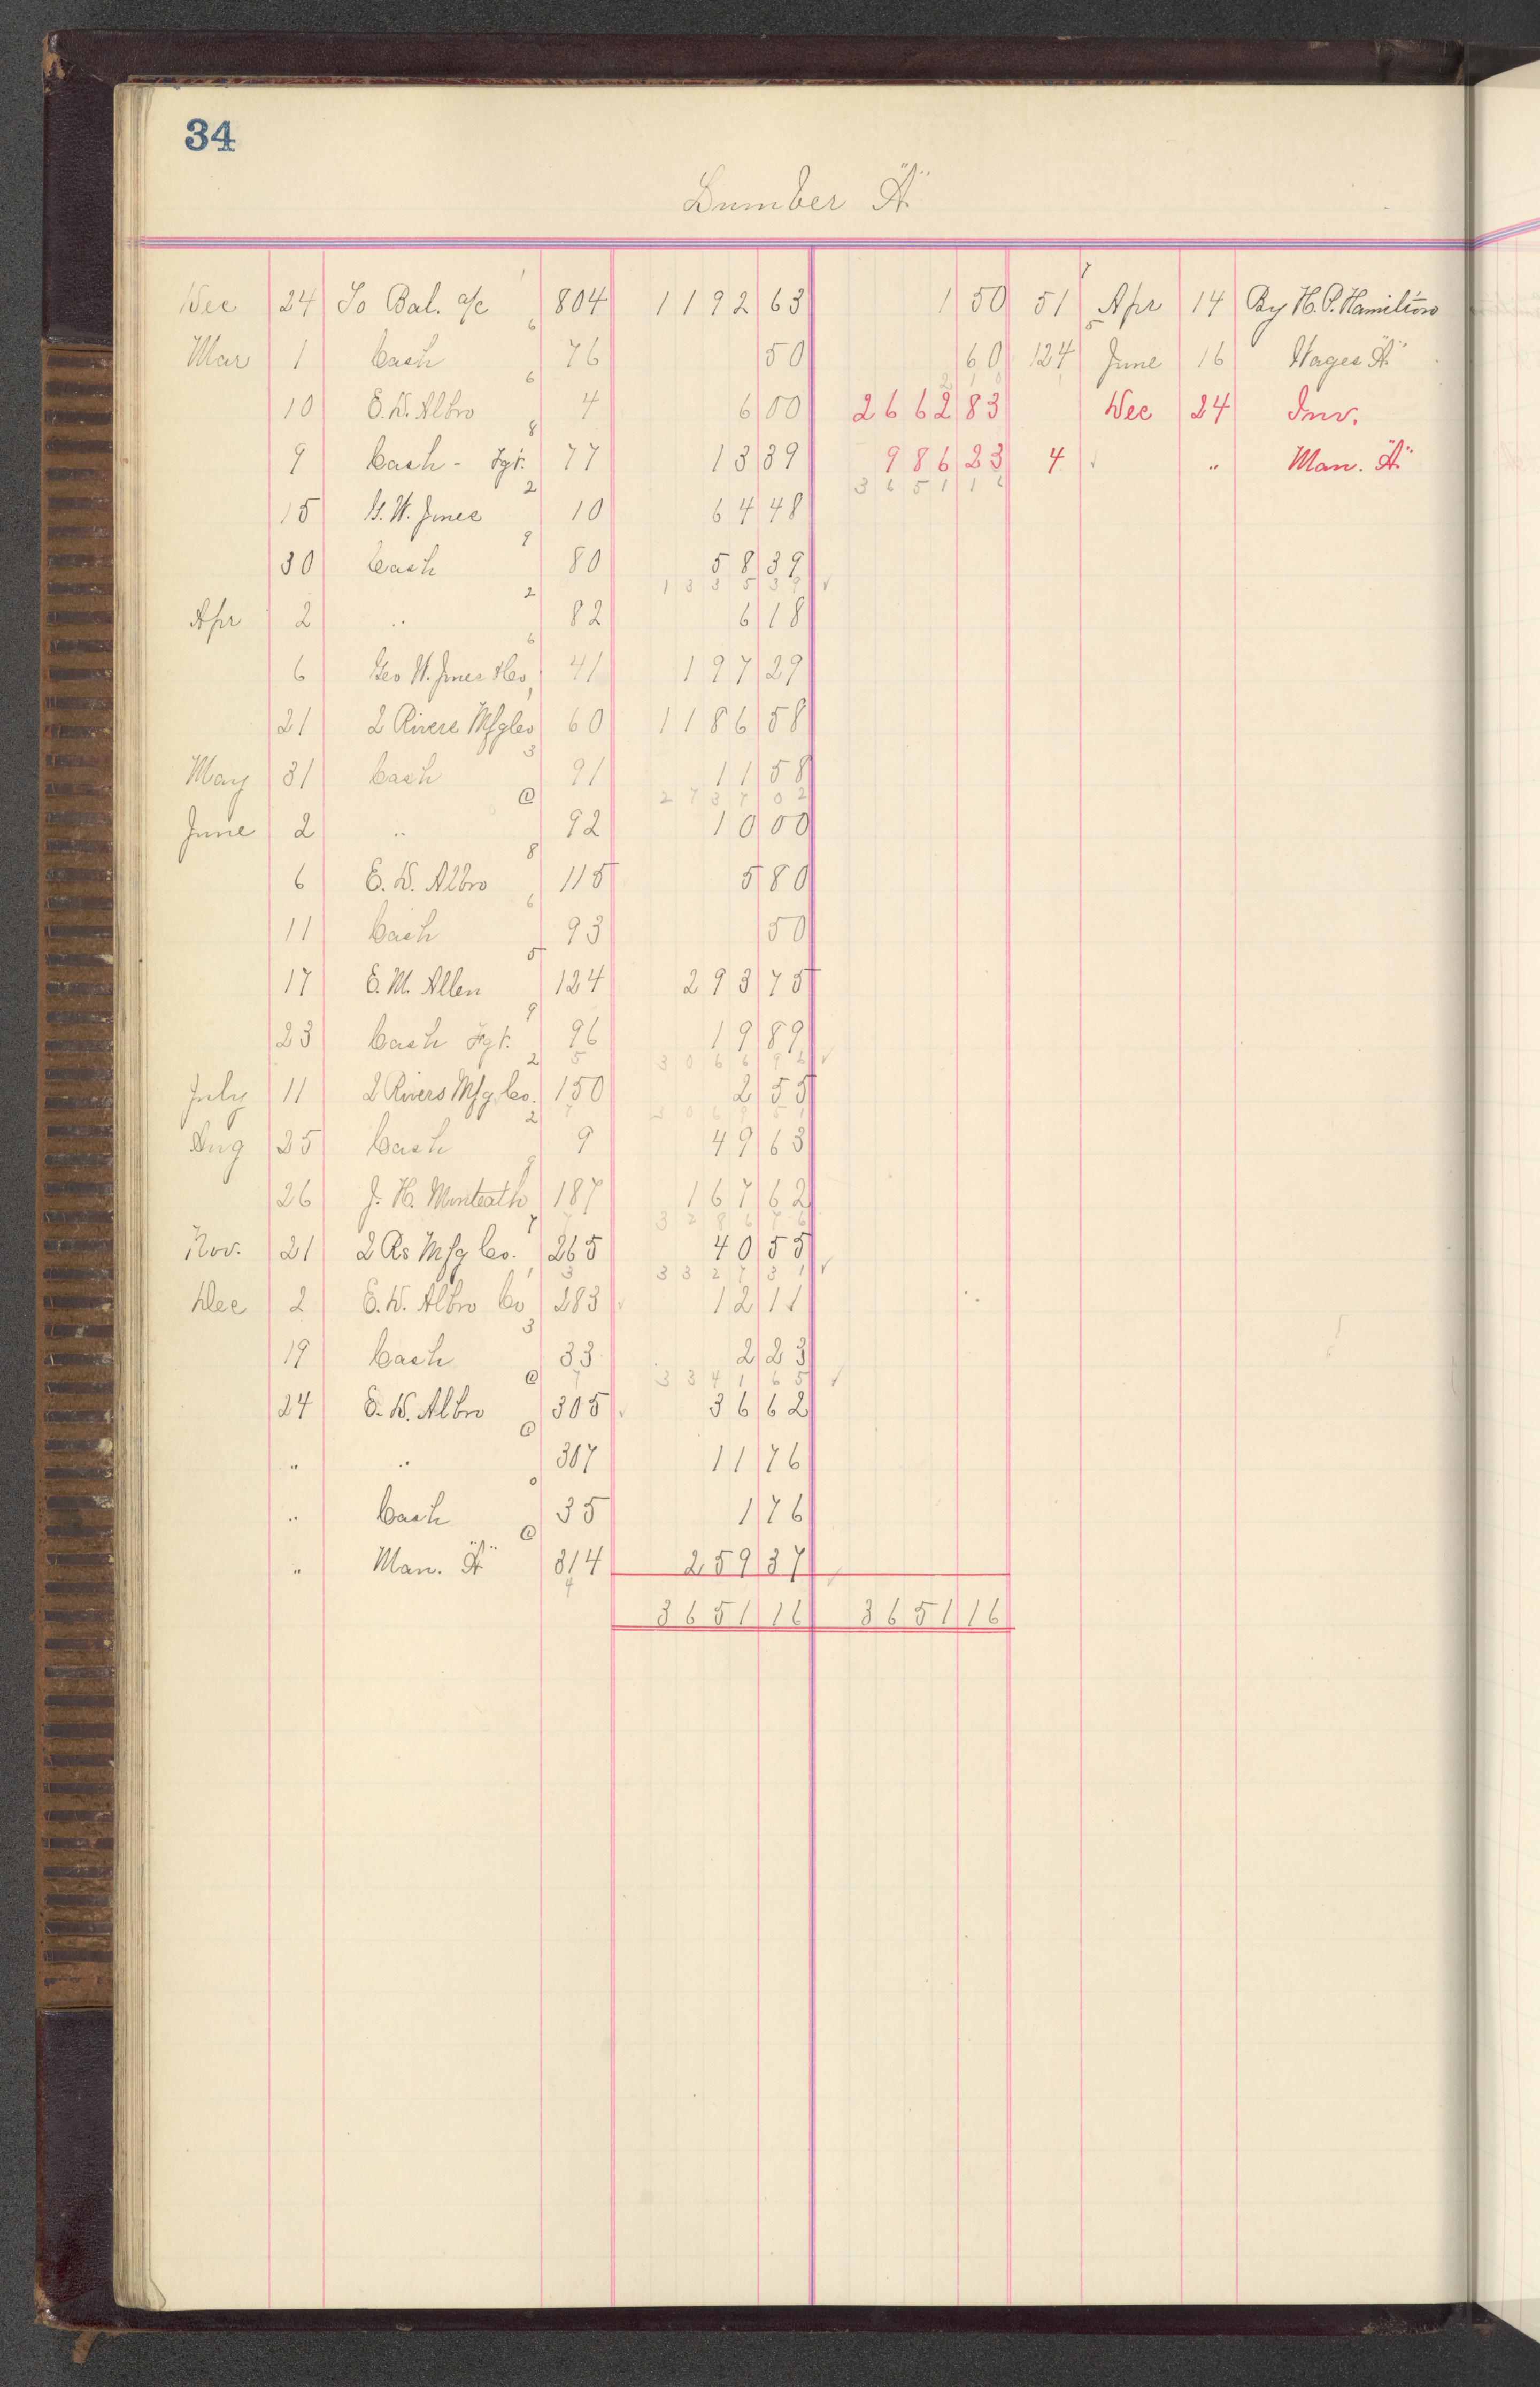 34
Lumber "A"
Dec 24 To Bal. a/c 1 804 1192 63 1 50 51 7 Apr 14 By H. P. Hamilton
Mar 1 Cash 6 76 50 60 124 5 June 16 Wages "A"
10 E. D. Albro 6 4 6 00 2662 83 Dec 24 Inv.
9 Cash - Fgt. 8 77 13 39 986 23 4 ✓ " Man. "A"
3651 16
15 G. W. Jones 2 10 64 48
30 Cash 9 80 58 39
1335 39 ✓
Apr 2 " 2 82 6 18
6 Geo W. Jones &Co 6 41 197 29
21 2 Rivers MfgCo 1 60 1186 58
May 31 Cash 3 91 11 58
2737 02
June 2 " @ 92 10 00
6 E. D. Albro 8 115 5 80
11 Cash 6 93 50
17 E. M. Allen 5 124 293 75
23 Cash Fgt. 9 96 19 89
5 3066 96 ✓
July 11 2 Rivers Mfg. Co. 2 150 2 55
7 3069 51
Aug 25 Cash 2 9 49 63
26 J. H. Monteath 9 187 167 62
7 3286 76
Nov. 21 2 Rs Mfg Co. 7 265 40 55
3 3327 31 ✓
Dec 2 E. D. Albro Co 1 283 ✓ 12 11
19 Cash 3 33 2 23
7 3341 65 ✓
24 E. D. Albro @ 305 ✓ 36 62
" " @ 307 11 76
" Cash 0 35 1 76
" Man. "A" @ 314 259 37
4
3651 16 3651 16